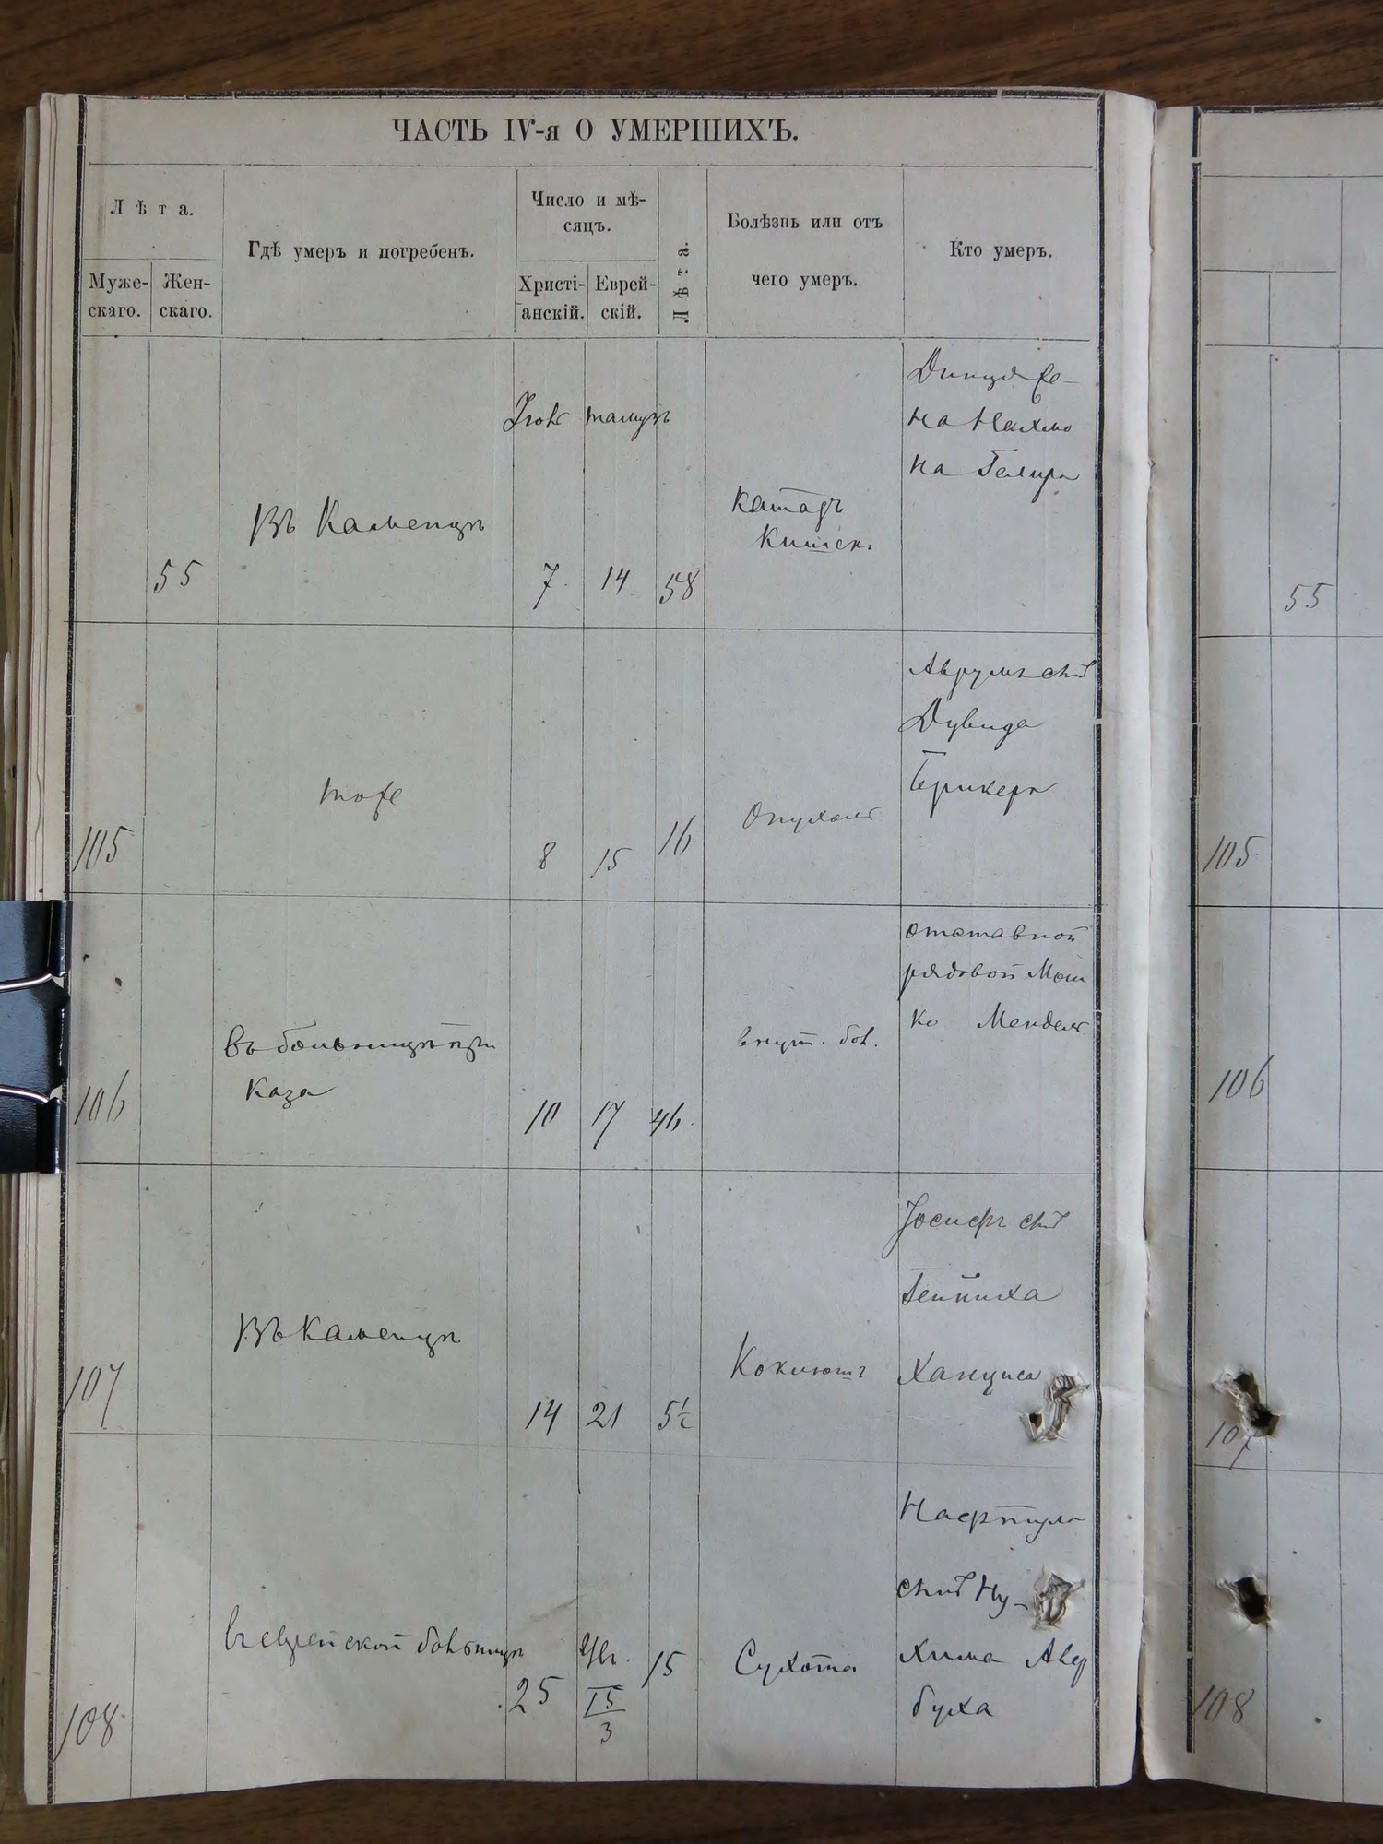 ЧАСТЬ IV-я О УМЕРШИХЪ.
Лѣта.
Муже-
скаго.
Жен-
скаго.
Гдѣ умеръ и погребенъ.
Число и мѣ-
сяцъ.
Христі-
анскій.
Еврей-
скій.
Лѣта.
Болѣзнь или отъ
чего умеръ.
Кто умеръ.
55
Въ Каменцѣ
Іюль
7
тамузъ
14
58
катаръ
кишек.
же-
на Нахма
на
55
105
тоже
8
15
16
Опухоль
Аврумъ сынъ
Дувида
Брикера
105
106
въ больницѣ при
каза
10
17
46
внут. бол.
отставной
рядовой Мош
ко Мендель
106
107
Въ Каменцѣ
14
21
5½
Коклюшъ
Іосифъ сынъ
107
108
въ еврейской больницѣ
25
15
3
15
Сухота
Нафтула
сынъ Ну-
хима Авер
буха
108